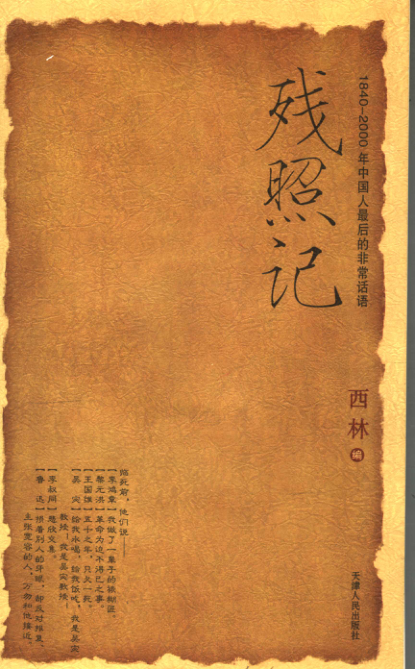 残照记
1840–2000年中国人最后的非常话语
西林 编
临死前，他们说——
【李鸿章】我做了一辈子的裱糊匠。
【黎元洪】革命为迫不得已之事。
【王国维】五十之年，只欠一死。
【吴宓】给我水喝，给我饭吃，我是吴宓
教授——我是吴宓教授——
【李叔同】悲欣交集。
【鲁迅】损着别人的牙眼，却反对报复，
主张宽容的人，万勿和他接近。
天津人民出版社